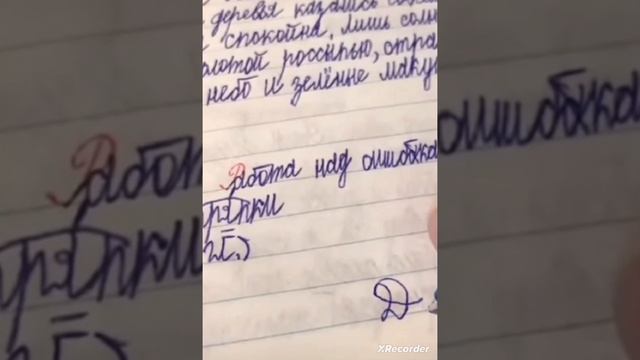 деревья казались
спокойна, лишь солн
олотой россыпью, отра
небо и зелёные маку
Работа над ошибка
ряпки
Д -
XRecorder